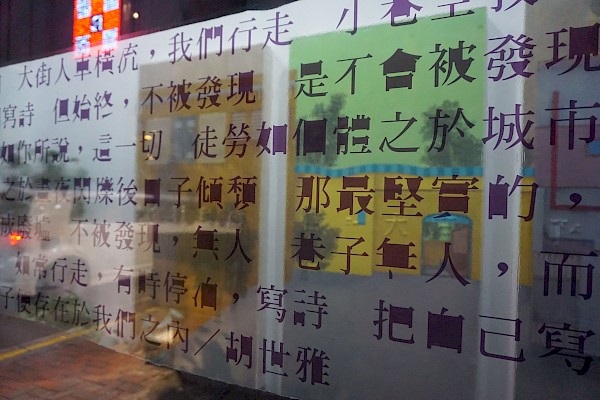 大街人車橫流，我們行走 小巷空
寫詩 但始終，不被發現 是不會被發現
如你所說，這一切 徒勞如個體之於城市
之於晝夜閃爍後日子傾頹 那最堅實的，
被廢墟 不被發現，無人 巷子無人，而
如常行走，有時停泊，寫詩 把自己寫
子便存在於我們之內／胡世雅